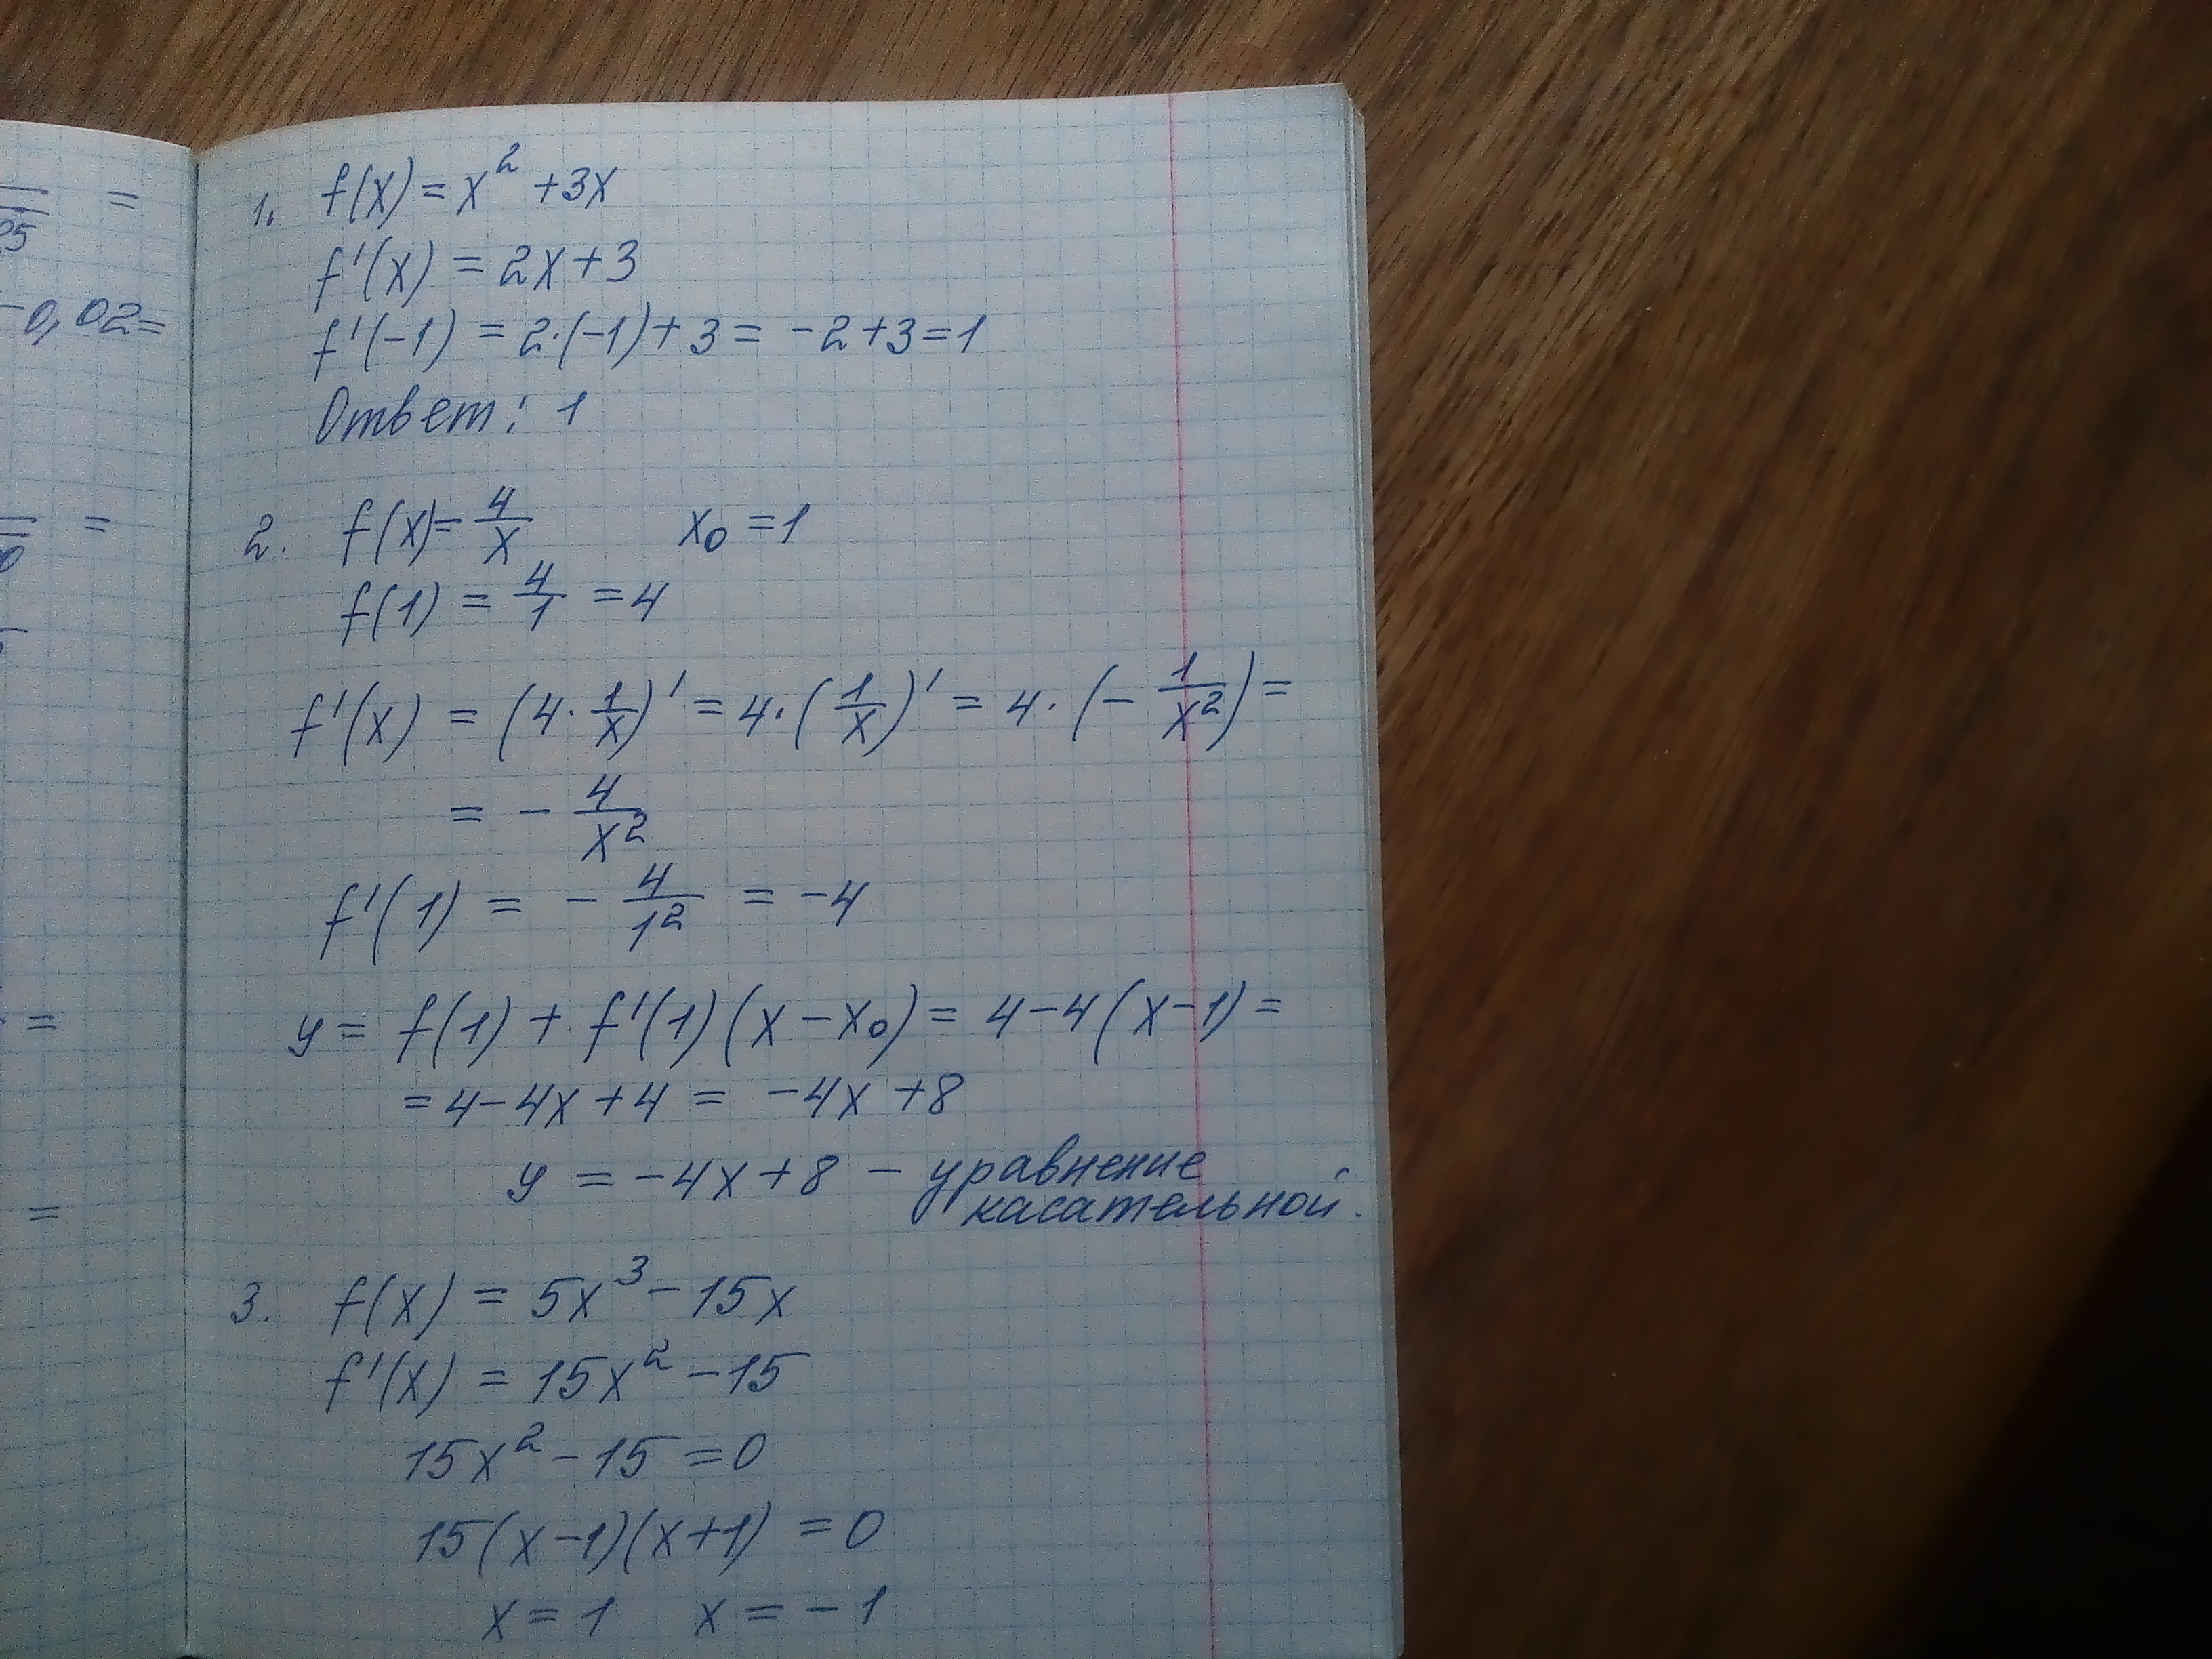 =
25
-0,02=
=
0
=
=
1. f(x)=x² +3x
f'(x) = 2x+3
f'(-1) = 2·(-1)+3= -2+3=1
Ответ: 1
2. f(x)= 4/x x₀ =1
f(1) = 4/1 =4
f'(x) = (4·1/x)' = 4·(1/x)' = 4·(- 1/x²)=
= - 4/x²
f'(1) = - 4/1² = -4
y= f(1) + f'(1)(x-x₀)= 4-4(x-1)=
=4-4x+4 = -4x+8
y = -4x+8 - уравнение
касательной.
3. f(x) = 5x³-15x
f'(x) = 15x²-15
15x²-15=0
15(x-1)(x+1) =0
x=1 x=-1